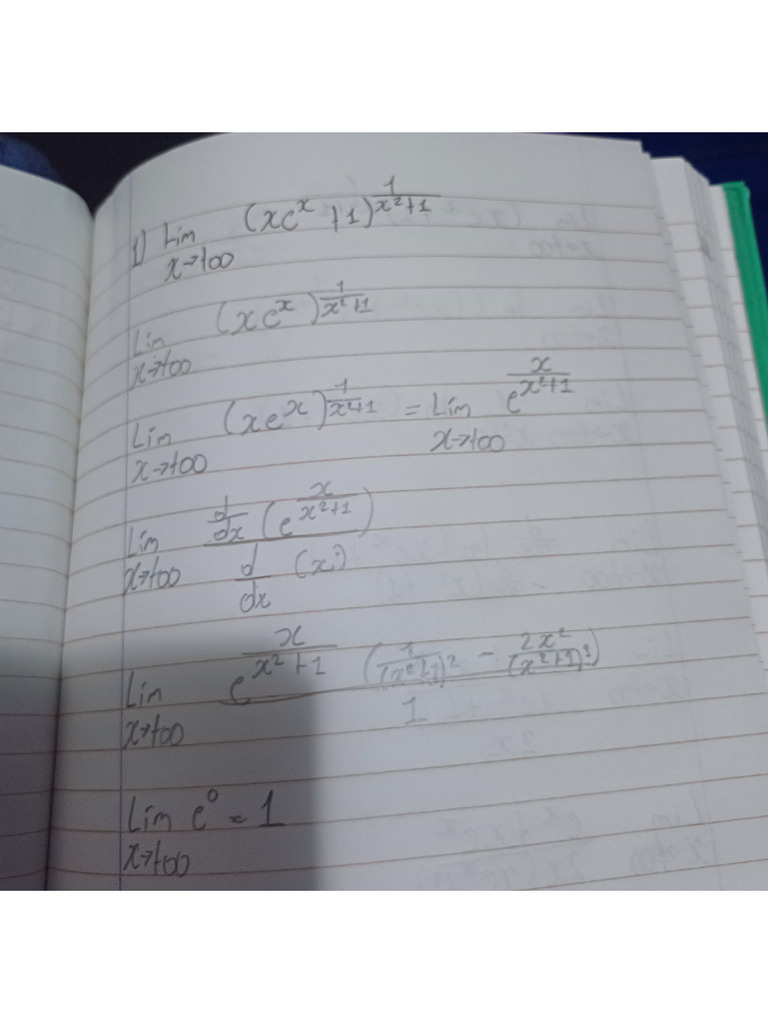 1) Lim x→+∞ (xe^x + 1)^(1/(x²+1))
Lim x→+∞ (xe^x)^(1/(x²+1))
Lim x→+∞ (xe^x)^(1/(x²+1)) = Lim x→+∞ e^(x/(x²+1))
Lim x→+∞ (d/dx (e^(x/(x²+1)))) / (d/dx (x))
Lim x→+∞ (e^(x/(x²+1)) (1/(x²+1)² - 2x²/(x²+1)²)) / 1
Lim x→+∞ e^0 = 1